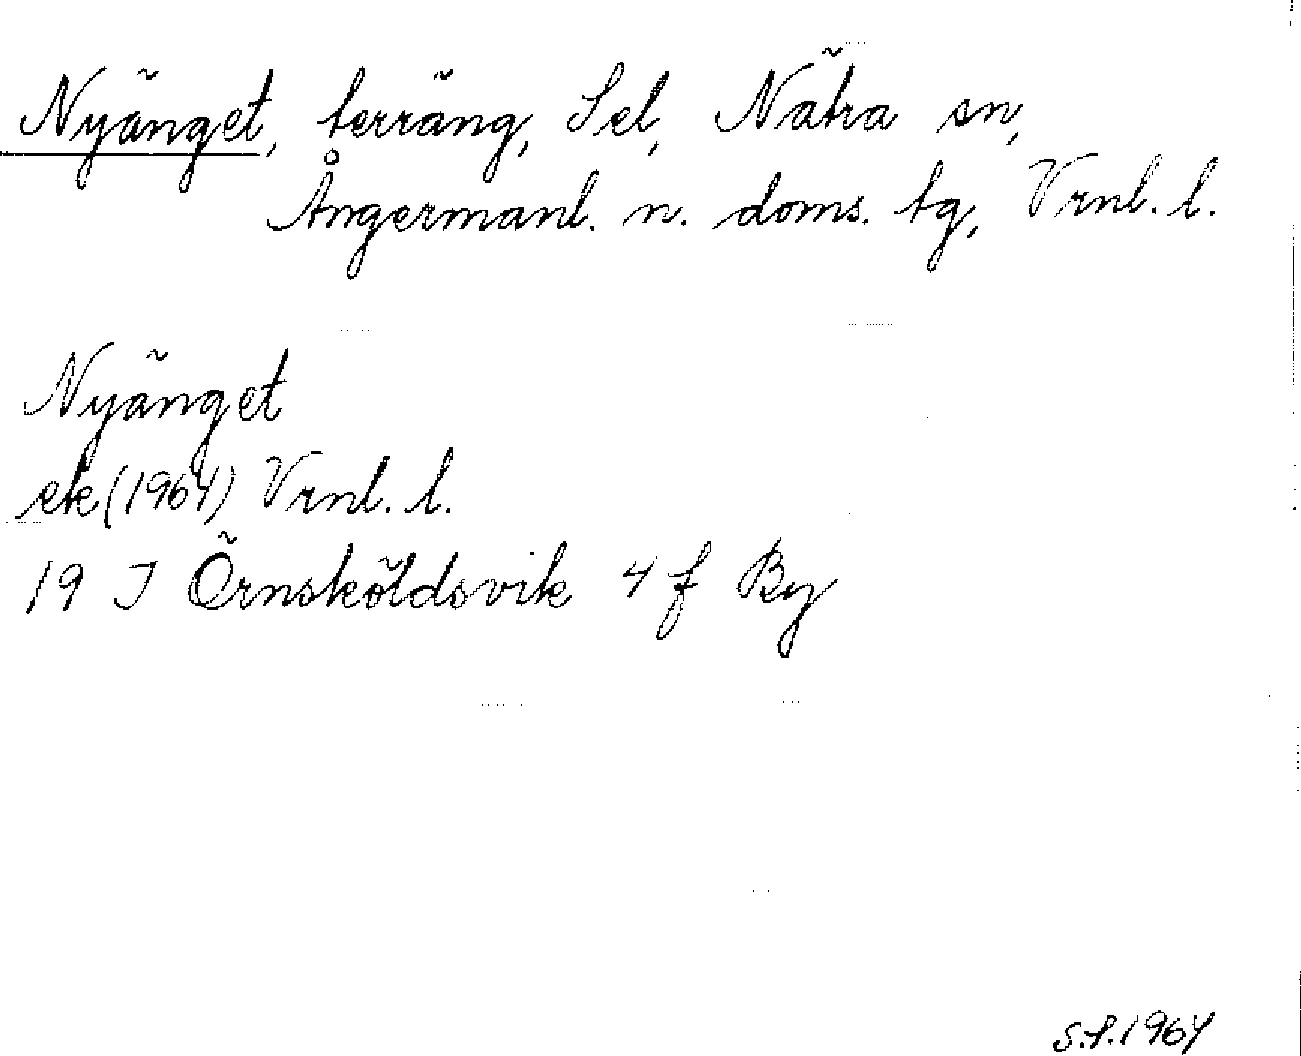 Nyänget, terräng, Sel, Nätra sn,
Ångermanl. n. doms. tg, Vrnl. l.
Nyänget
ek (1964) Vrnl. l.
19 J Örnsköldsvik 4 f By
S.S. 1964